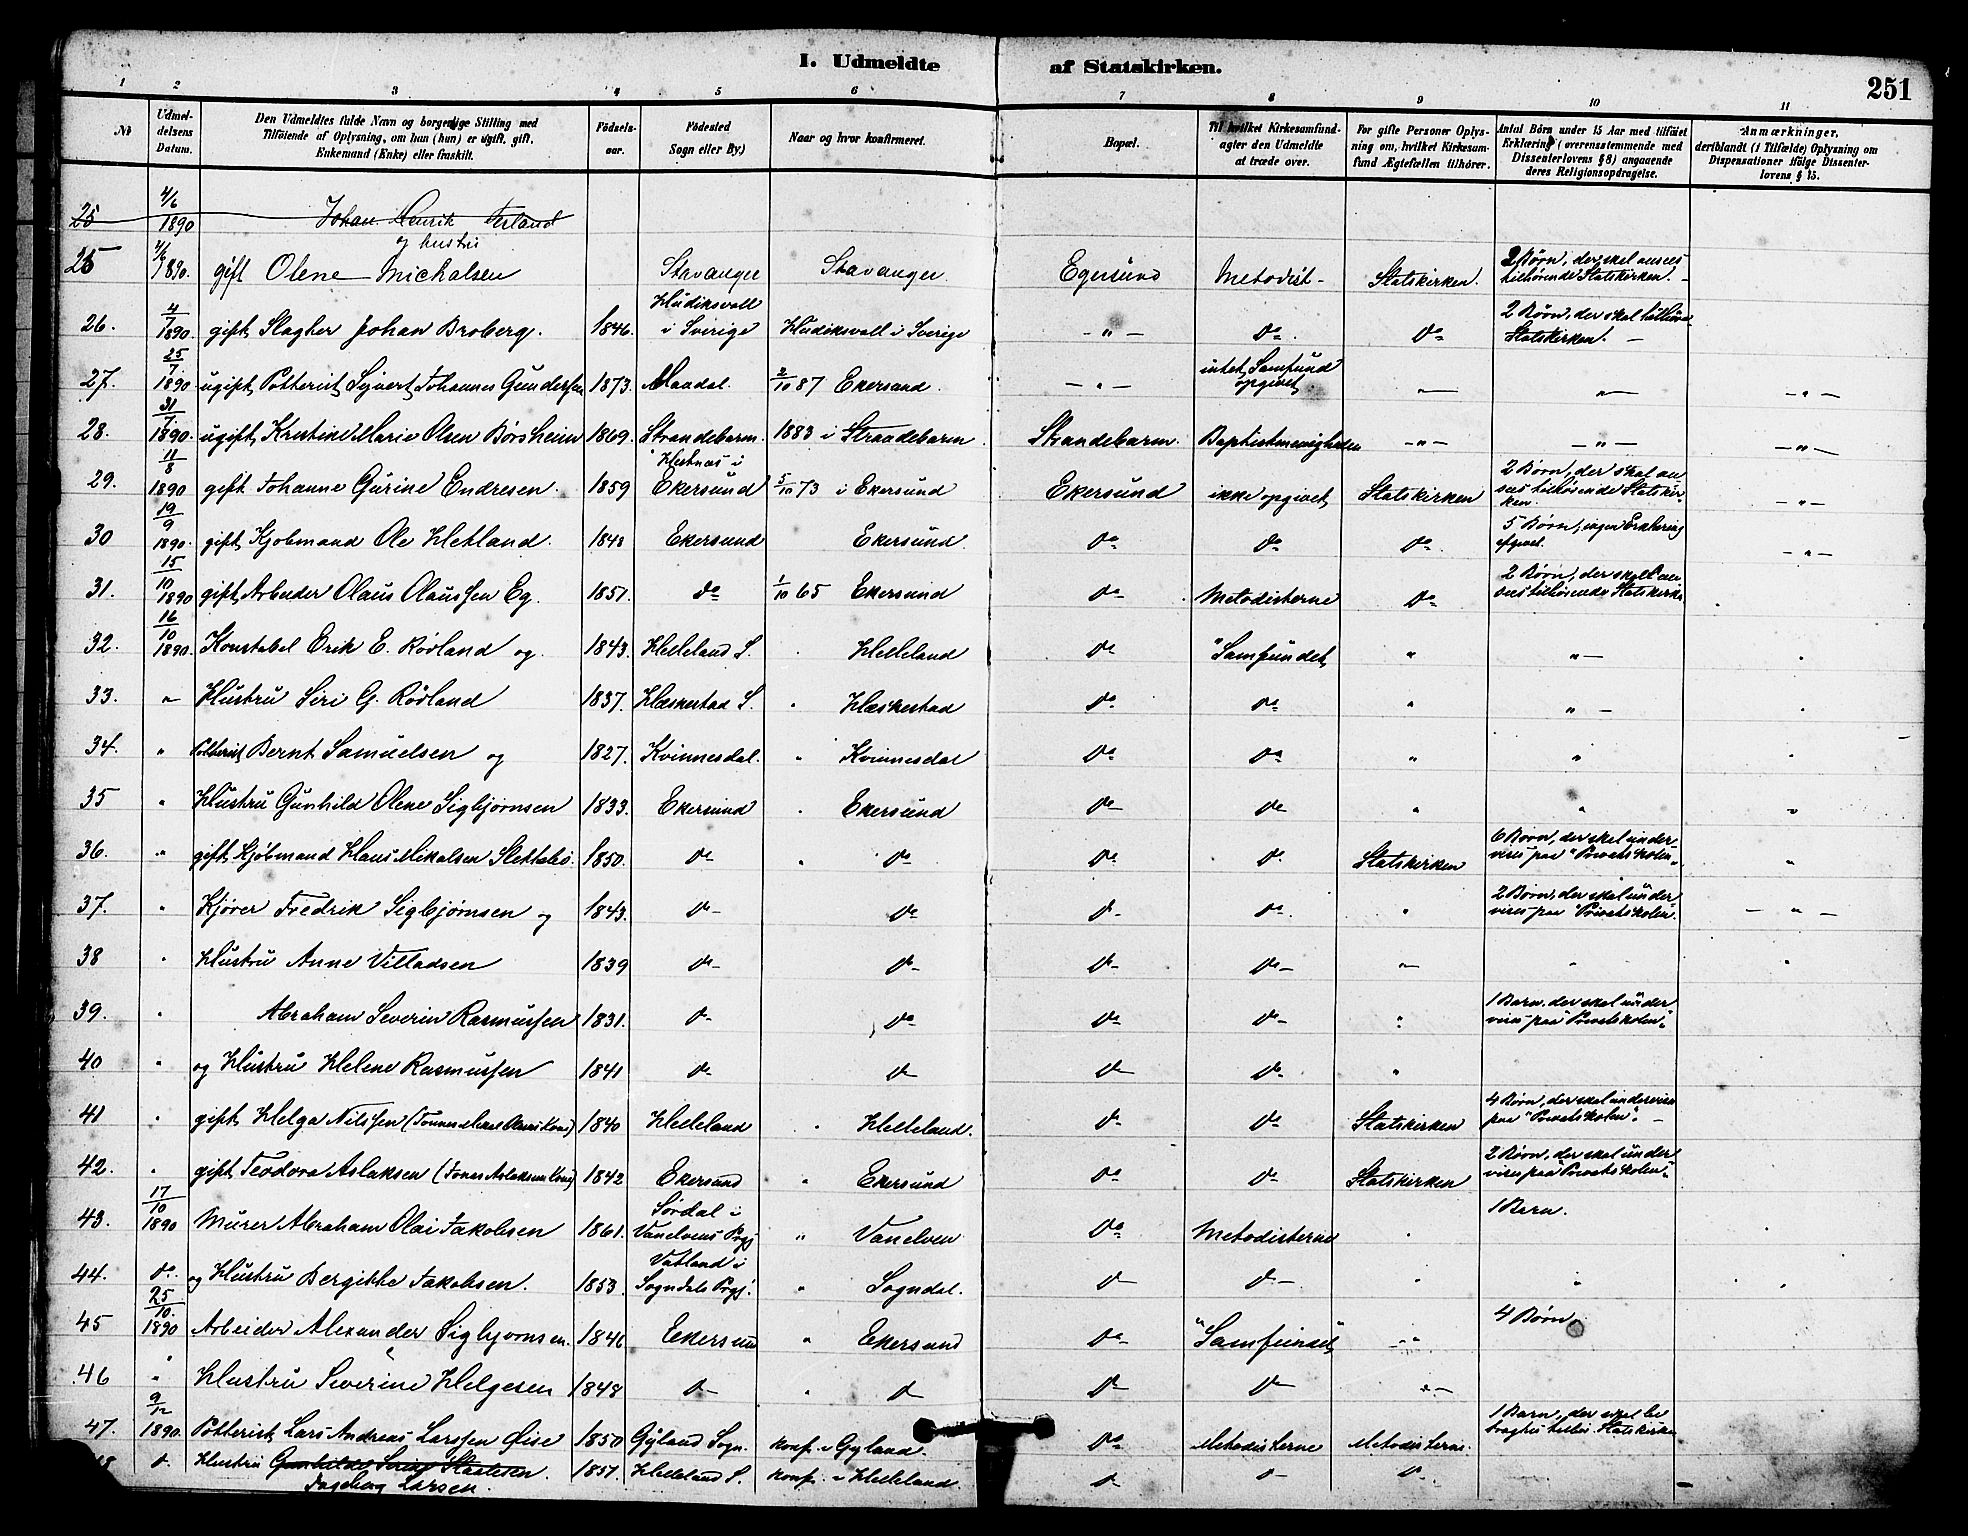 I. Udmeldte af Statskirken.
251
1 2 3 4 5 6 7 8 9 10 11
No
Udmeldelsens Datum.
Den Udmeldtes fulde Navn og borgerlige Stilling med
Tilføiende af Oplysning, om han (hun) er ugift, gift,
Enkemand (Enke) eller fraskilt.
Fødselsaar.
Fødested
Sogn eller By.)
Naar og hvor konfirmeret.
Bopæl.
Til hvilket Kirkesamfund
agter den Udmeldte
at træde over.
For gifte Personer Oplysning
om, hvilket Kirkesamfund
Ægtefællen tilhører.
Antal Børn under 15 Aar med tilføiet
Erklæring (overensstemmende med
Dissenterlovens § 8) angaaende
deres Religionsopdragelse.
Anmærkninger,
deriblandt (i Tilfælde) Oplysning om
Dispensationer ifølge Dissenterlovens
§ 15.
25 4/6 1890 Johan Henrik Terland
og hustru
25 4/6 1890. gift Olene Michalsen Stavanger Stavanger. Egersund Metodist - Statskirken. 2 Børn, der skal ansees tilhørende Statskirken. -
26. 4/7 1890. gift, Slagter Johan Broberg. 1846. Hudiksvall i Sverige Hudiksvall i Sverige - " - do. do 2 Børn, der skal tilhøre Statskirken. -
27. 25/7 1890 ugift, Potterist, Sivert Johannes Gundersen 1873. Mandal. 2/10 87 Ekersund. - " - intet Samfund opgivet " " - " -
28. 31/7 1890. ugift, Kristine Marie Olsen Børsheim 1869. Strandebarm. 1883 i Strandebarm Strandebarm. Baptistmenigheden - " - - " - - " -
29. 11/8 1890 gift Johanne Gurine Endresen. 1859 Hestnes i Ekersund 5/10 73 i Ekersund Ekersund ikke opgivet, Statskirken 2 Børn, der skal ansees tilhørende Statskirken - " -
30 19/9 1890. gift, Kjøbmand Ole Hetland. 1848 Ekersund Ekersund. do do do. 5 Børn, ingen Erklæring afgivet. - " -
31. 15/10 1890 gift, Arbeider Olaus Olaussen Eg. 1851. do 1/10 65 Ekersund do Metodisterne do 2 Børn, der skal ansees tilhørende Statskirken
32. 16/10 1890. Konstabel Erik E. Rövland og 1843. Helleland S. Helleland do "Samfundet, " " -
33. " Hustru Siri G. Rövland 1837. Heskestad S. " Heskestad do. do " " -
34. " Potterist, Bernt Samuelsen og 1827. Kvinnesdal. " Kvinnesdal do do " "
35 " Hustru Gunhild Olene Sigbjørnsen 1833. Ekersund Ekersund do do " "
36. " gift, Kjøbmand Hans Mikalsen Slettebø. 1850. do " do do do Statskirken 6 Børn, der skal undervises paa "Privatskolen" "
37. " Kjører Fredrik Sigbjørnsen og 1843. do do do do. " 2 Børn, der skal undervises paa "Privatskolen". - " -
38 " Hustru Anne Villadsen 1839 do do do do - " " "
39. " Abraham Severin Rasmussen 1831. do do do do - " 1 Barn, der skal undervises paa "Privatskolen".
40 " og Hustru Helene Rasmussen 1841 do do do do "
41 " gift, Helga Nilssen 1840 Helleland " Helleland. do do Statskirken 4 Børn, der skal undervises paa "Privatskolen". -
42. " gift Teodora Aslaksen (Jonas Aslaksens Kone) 1842 Ekersund " Ekersund do do Statskirken 2 Børn, der skal undervises paa "Privatskolen".
43. 17/10 1890 Murer Abraham Olai Jakobsen 1861. Sørdal i Vanelvens Prgj. " Vanelven do Metodisterne 1 Barn.
44. do. og Hustru Bergitte Jakobsen. 1853. Vatland i Sogndals Prgj. " Sogndal. do do - " "
45 25/10. 1890 Arbeider Alexander Sigbjørnsen. 1846 Ekersund " Ekersund do "Samfundet, " 4 Børn.
46 " Hustru Severine Helgesen 1848 do " do do do " -
47. 9/12 1890. Potterist, Lars Andreas Larssen Øise 1850 Gyland Sogn. konf. i Gyland. do Metodisterne Metodisterne. 1 Barn, der skal betragtes tilhø. Statskirken
48 do. Hustru 1851. Helleland S. konf. i Helleland. do do do
Ingeborg Larsen.